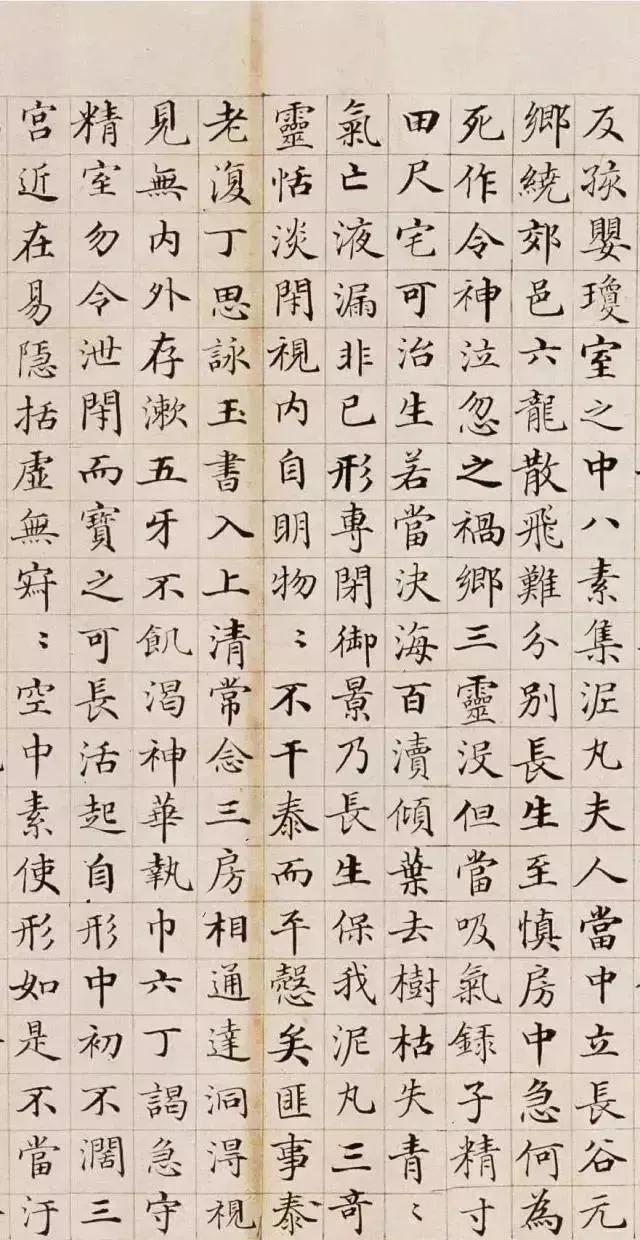 反孩嬰瓊室之中八素集泥丸夫人當中立長谷元
鄉繞郊邑六龍散飛難分別長生至慎房中急何為
死作令神泣忽之禍鄉三靈沒但當吸氣録子精寸
田尺宅可治生若當決海百瀆傾葉去樹枯失青〻
氣亡液漏非已形專閉御景乃長生保我泥丸三奇
靈恬淡閇視內自明物〻不干泰而平慤矣匪事泰
老復丁思詠玉書入上清常念三房相通達洞得視
見無內外存漱五牙不飢渴神華執巾六丁謁急守
精室勿令泄閇而寶之可長活起自形中初不濶三
宮近在易隱括虛無寂〻空中素使形如是不當汙